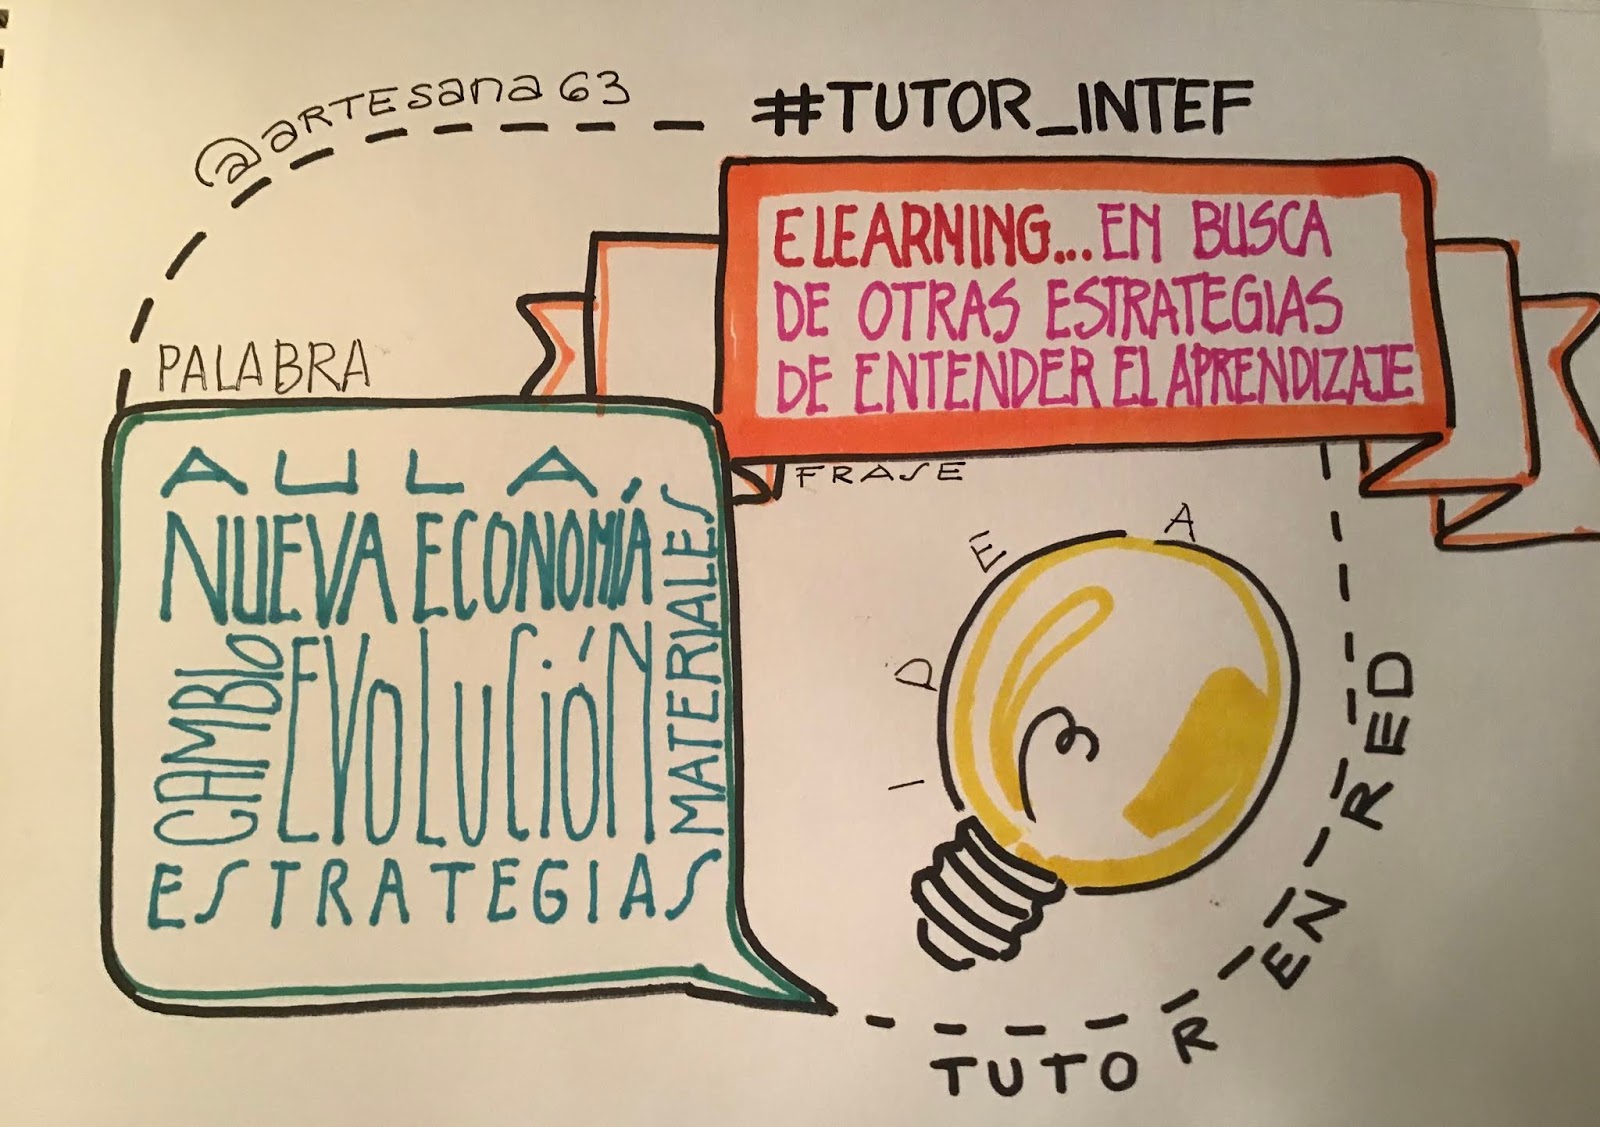 @artesana63
#TUTOR_INTEF
ELEARNING... EN BUSCA
DE OTRAS ESTRATEGIAS
DE ENTENDER EL APRENDIZAJE
FRASE
PALABRA
AULA,
NUEVA ECONOMÍA
CAMBIO
EVOLUCIÓN
MATERIALES
ESTRATEGIAS
IDEA
TUTOR EN RED